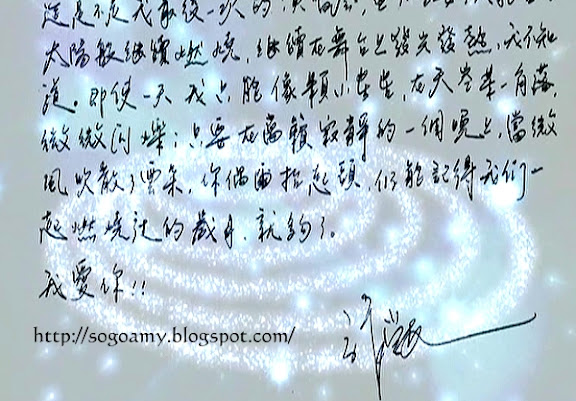 這是不是我最後一次的演唱會，
太陽般繼續燃燒，繼續在舞台上發光發熱，我不知
道。即使一天我只能像顆小星星，在天空某一角落，
微微閃爍；只要在萬籟寂靜的一個晚上，當微
風吹散了雲朵，你偶爾抬起頭，仍能記得我們一
起燃燒過的歲月，就夠了。
我愛你!!
http://sogoamy.blogspot.com/